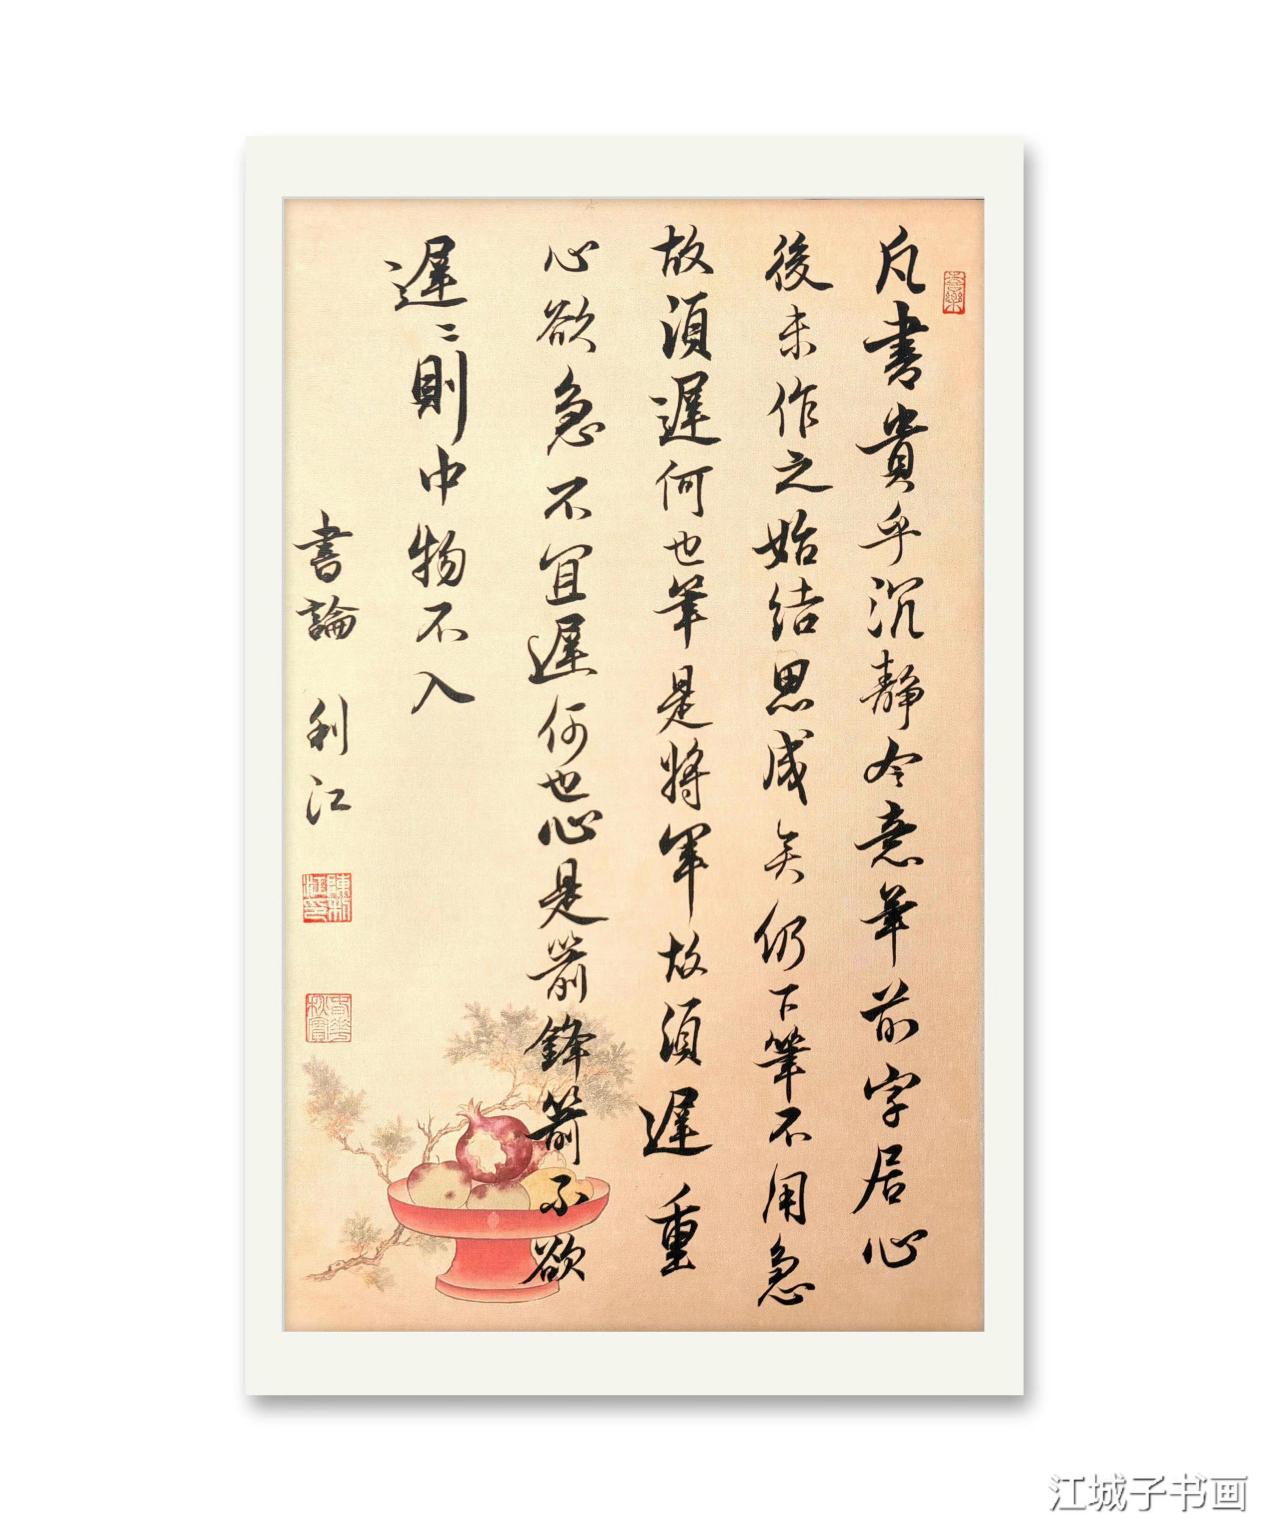 凡書貴乎沉静令意筆前字居心
後未作之始結思成矣仍下筆不用急
故須遲何也筆是將軍故須遲重
心欲急不宜遲何也心是箭鋒箭不欲
遲〻則中物不入
書論 利江
陳利江印
春華秋實
江城子书画